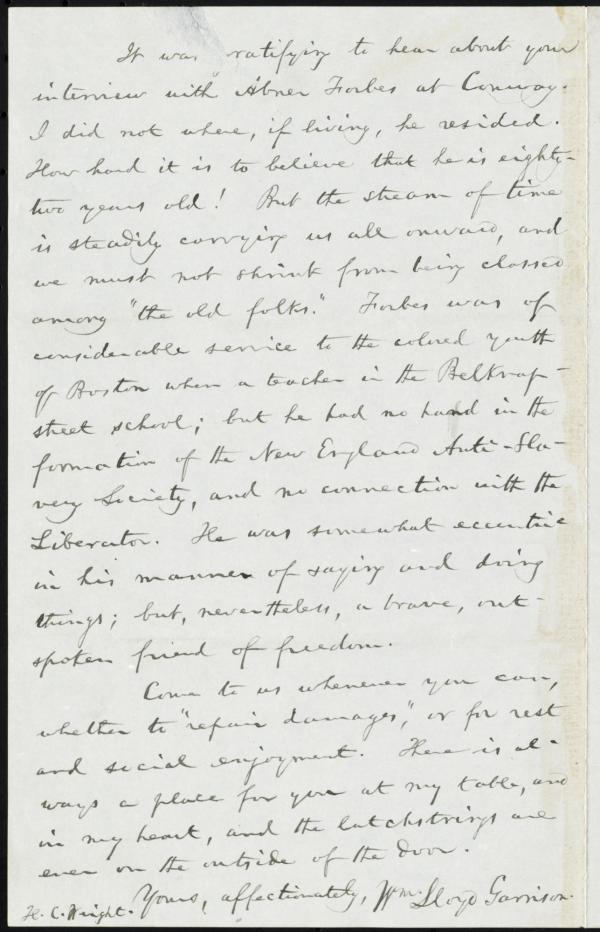 It was ratifying to hear about your
interview with Abner Forbes at Conway.
I did not where, if living, he resided.
How hard it is to believe that he is eighty-
two years old! But the stream of time
is steadily carrying us all onward, and
we must not shrink from being classed
among "the old folks." Forbes was of
considerable service to the colored youth
of Boston when a teacher in the Belknap-
street school; but he had no hand in the
formation of the New England Anti-Sla-
very Society, and no connection with the
Liberator. He was somewhat eccentric
in his manner of saying and doing
things; but, nevertheless, a brave, out-
spoken friend of freedom.
Come to us whenever you can,
whether to "repair damages," or for rest
and social enjoyment. There is al-
ways a place for you at my table, and
in my heart, and the latchstrings are
ever on the outside of the door.
Yours, affectionately, Wm. Lloyd Garrison.
H. C. Wright.